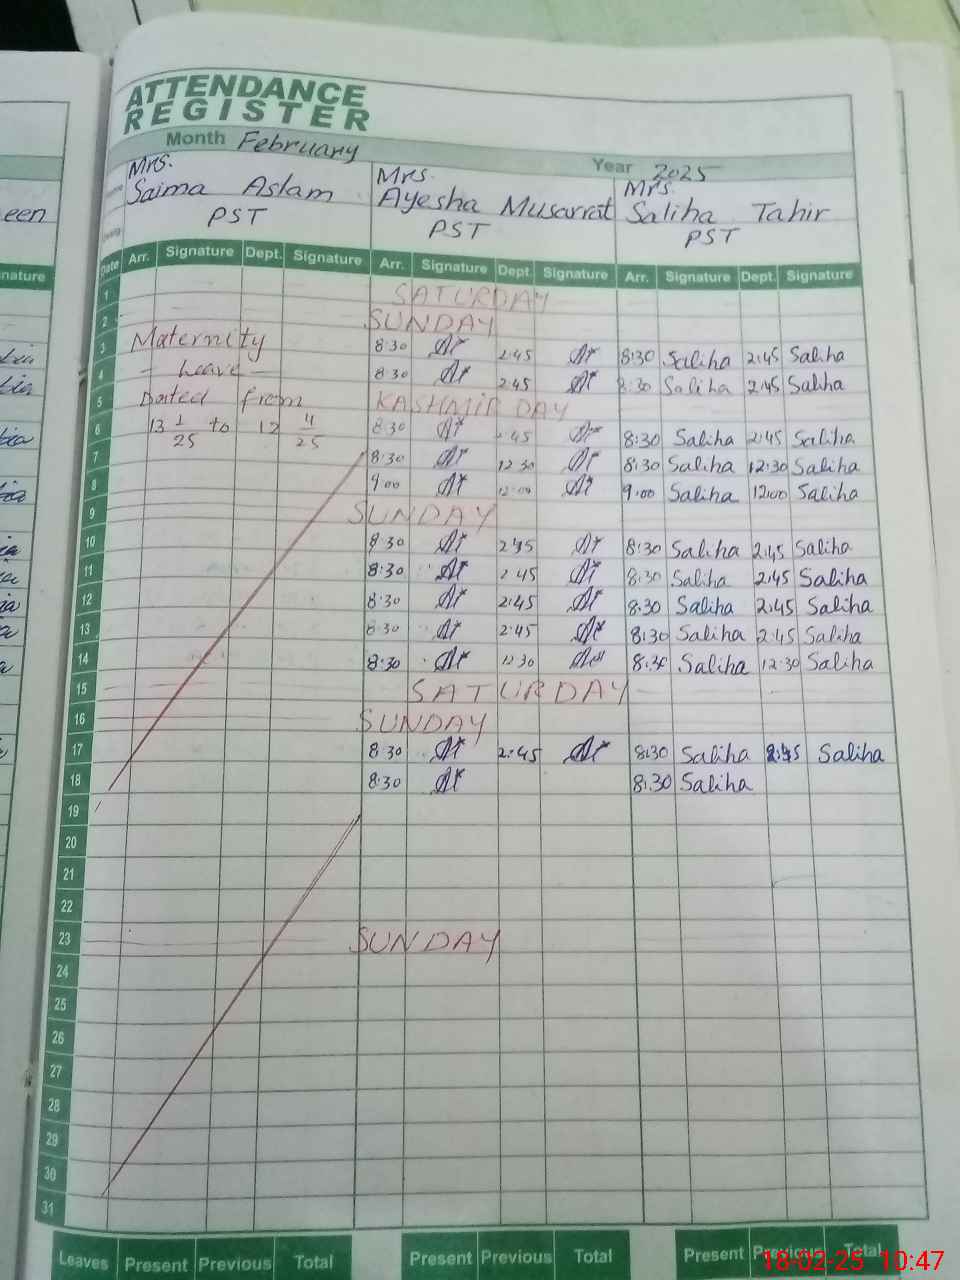 ATTENDANCE
REGISTER
Month February
Year 2025
Mrs. Saima Aslam PST
Mrs. Ayesha Musarrat PST
Mrs. Saliha Tahir PST
een
nature
Date Arr. Signature Dept. Signature Arr. Signature Dept. Signature Arr. Signature Dept. Signature
1 SATURDAY
2 SUNDAY
3 Maternity 8:30 2:45 8:30 Saliha 2:45 Saliha
4 - Leave - 8:30 2:45 8:30 Saliha 2:45 Saliha
5 Dated from KASHMIR DAY
6 13 1/25 to 12 4/25 8:30 2:45 8:30 Saliha 2:45 Saliha
7 8:30 12:30 8:30 Saliha 12:30 Saliha
8 9:00 12:00 9:00 Saliha 12:00 Saliha
9 SUNDAY
10 8:30 2:45 8:30 Saliha 2:45 Saliha
11 8:30 2:45 8:30 Saliha 2:45 Saliha
12 8:30 2:45 8:30 Saliha 2:45 Saliha
13 8:30 2:45 8:30 Saliha 2:45 Saliha
14 8:30 12:30 8:30 Saliha 12:30 Saliha
15 SATURDAY
16 SUNDAY
17 8:30 2:45 8:30 Saliha 2:45 Saliha
18 8:30 8:30 Saliha
19
20
21
22
23 SUNDAY
24
25
26
27
28
29
30
31
Leaves Present Previous Total Present Previous Total Present Previous Total
18-02-25 10:47